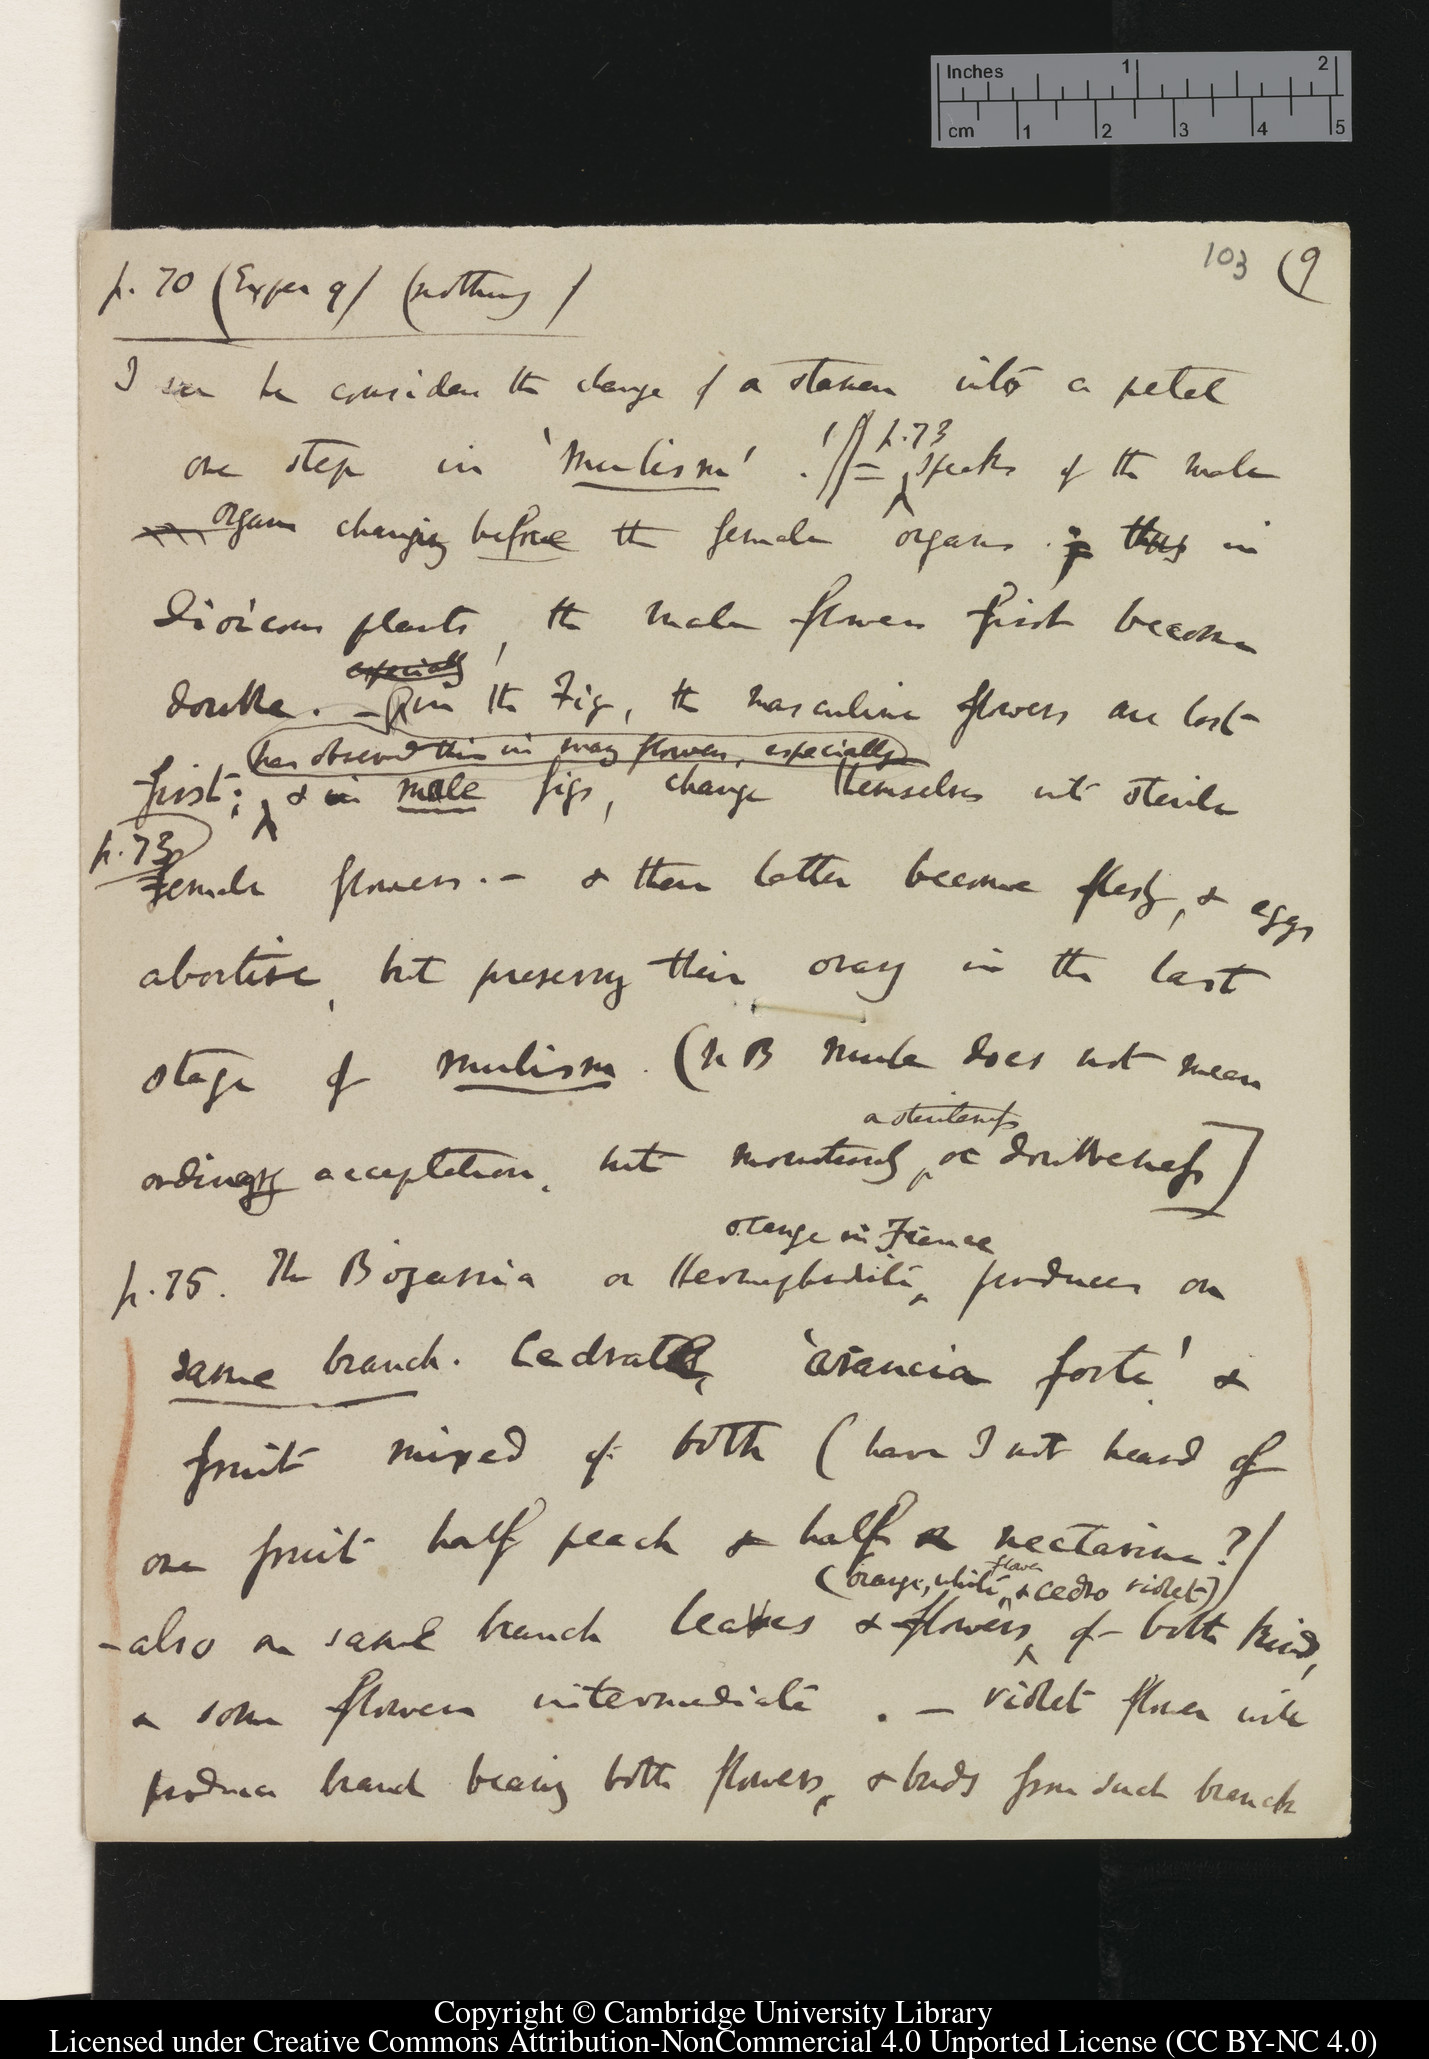 Inches 1 2
cm 1 2 3 4 5
103 (9
p. 70 (Exper 9) (nothing)
I see he considers the change of a stamen into a petal
one step in 'Mulism'. ! // = p. 73 speaks of the male
organs changing before the female organs. thus in
dioicous plants, the male flowers first become
especially
double. — in the Fig, the masculine flowers are lost
has observed this in many flowers, especially
first; & in male figs, change themselves into sterile
p. 73
female flowers. — & then latter become fleshy, & eggs
abortive, but preserving their ovary in the last
stage of mulism. (NB Mule does not mean
a sterileness
ordinary acceptation, but monstrously, or doubleness]
orange in France
p. 75. The Bizarria or Hermaphrodite, produces on
same branch. Cedrates, 'arancia forte' &
fruit mixed of both (have I not heard of
one fruit half peach & half nectarine?)
(orange, white flower & cedro violet)
— also on same branch leaves & flowers of both kind,
& some flowers intermediate. — violet flower will
produce branch bearing both flowers, & buds from such branch
Copyright © Cambridge University Library
Licensed under Creative Commons Attribution-NonCommercial 4.0 Unported License (CC BY-NC 4.0)